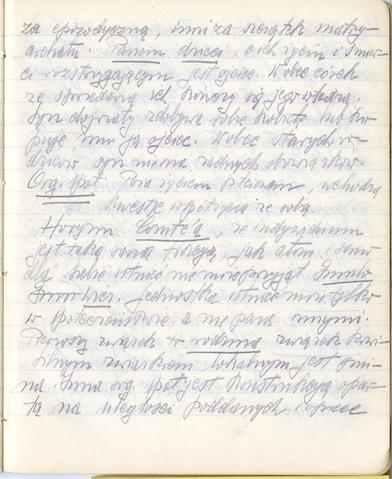 za epizodyczną, inni za szczątek matry-
archatu. Panem dzieci, o ich życiu i śmier-
ci rozstrzygającym jest ojciec. Wobec córek
ze sprzedażą ich, kończy się jego władza.
Syn dojrzały zdobywa sobie kobietę lub ku-
puje mu ją ojciec. Wobec starych ro-
dziców syn niema żadnych obowiązków.
Org. społ. Poza życiem wchodzą
kwestje współżycia ze sobą.
Comte'a, że indywiduum
jest taką samą fikcją, jak atom, samo
dla siebie istnieć nie może
Jednostka istnieć może tylko
w społeczeństwie, a nie poza innymi.
Pierwszy związek to rodzina, związek krwi
związkiem lokalnym jest gmi-
na. Inna org. społ. jest konstrukcją opar-
tą na uległości poddanych, oprzeć